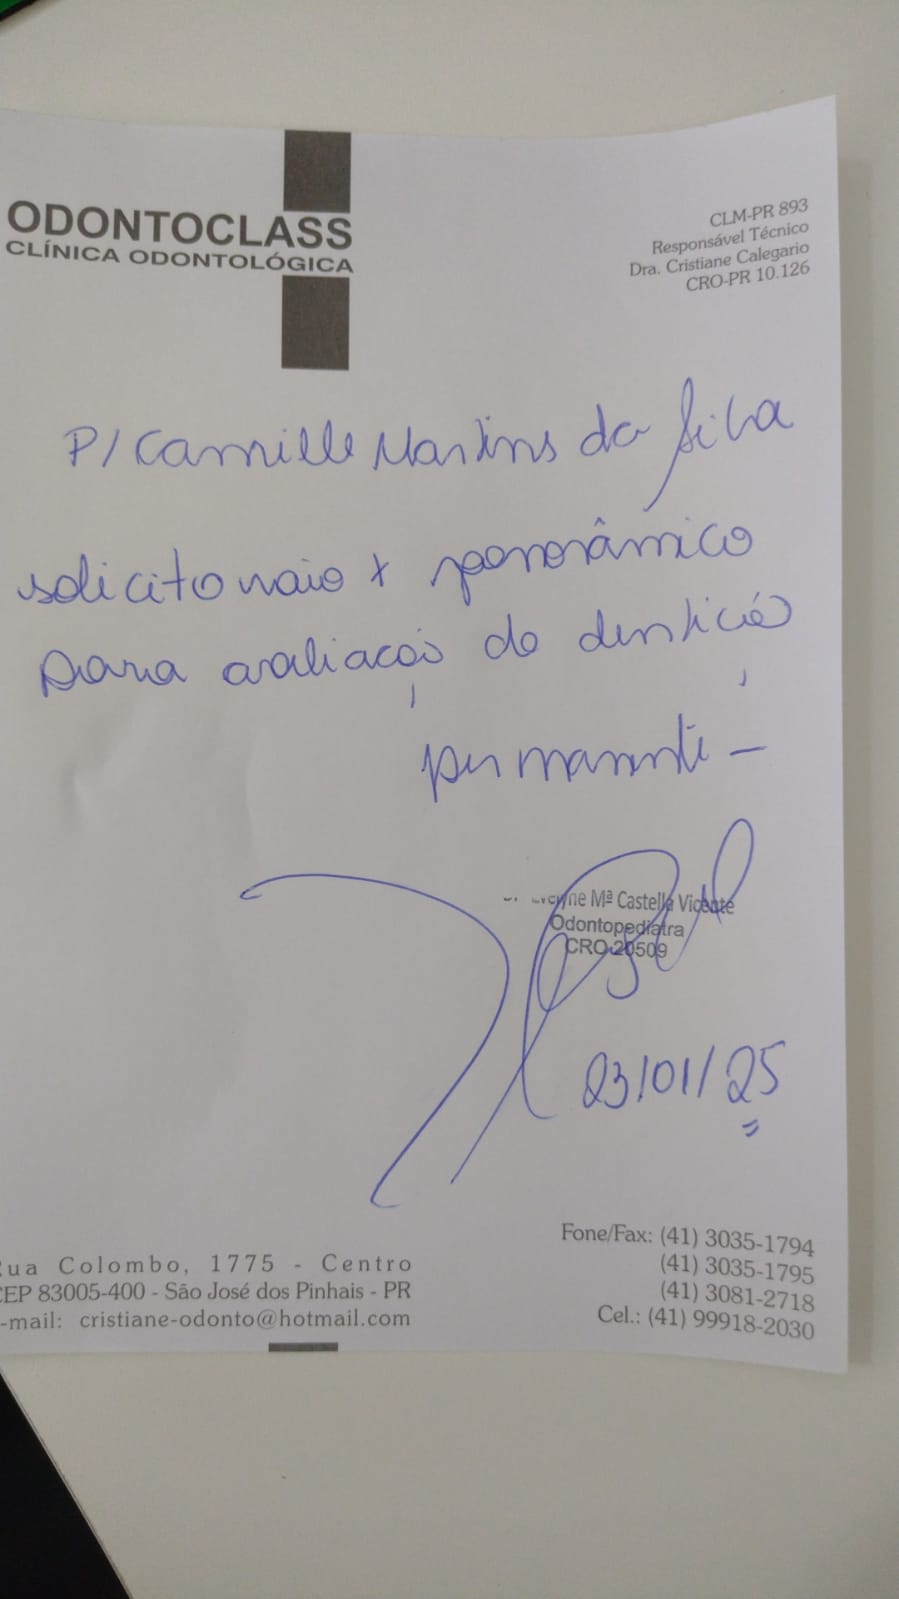 ODONTOCLASS
CLÍNICA ODONTOLÓGICA
CLM-PR 893
Responsável Técnico
Dra. Cristiane Calegario
CRO-PR 10.126
P/ Camille Martins da Silva
solicito raio x panorâmico
para avaliação da dentição
permanente –
Mª Castella Vicente
Odontopediatra
CRO 20509
23/01/25
Rua Colombo, 1775 - Centro
CEP 83005-400 - São José dos Pinhais - PR
e-mail: cristiane-odonto@hotmail.com
Fone/Fax: (41) 3035-1794
(41) 3035-1795
(41) 3081-2718
Cel.: (41) 99918-2030